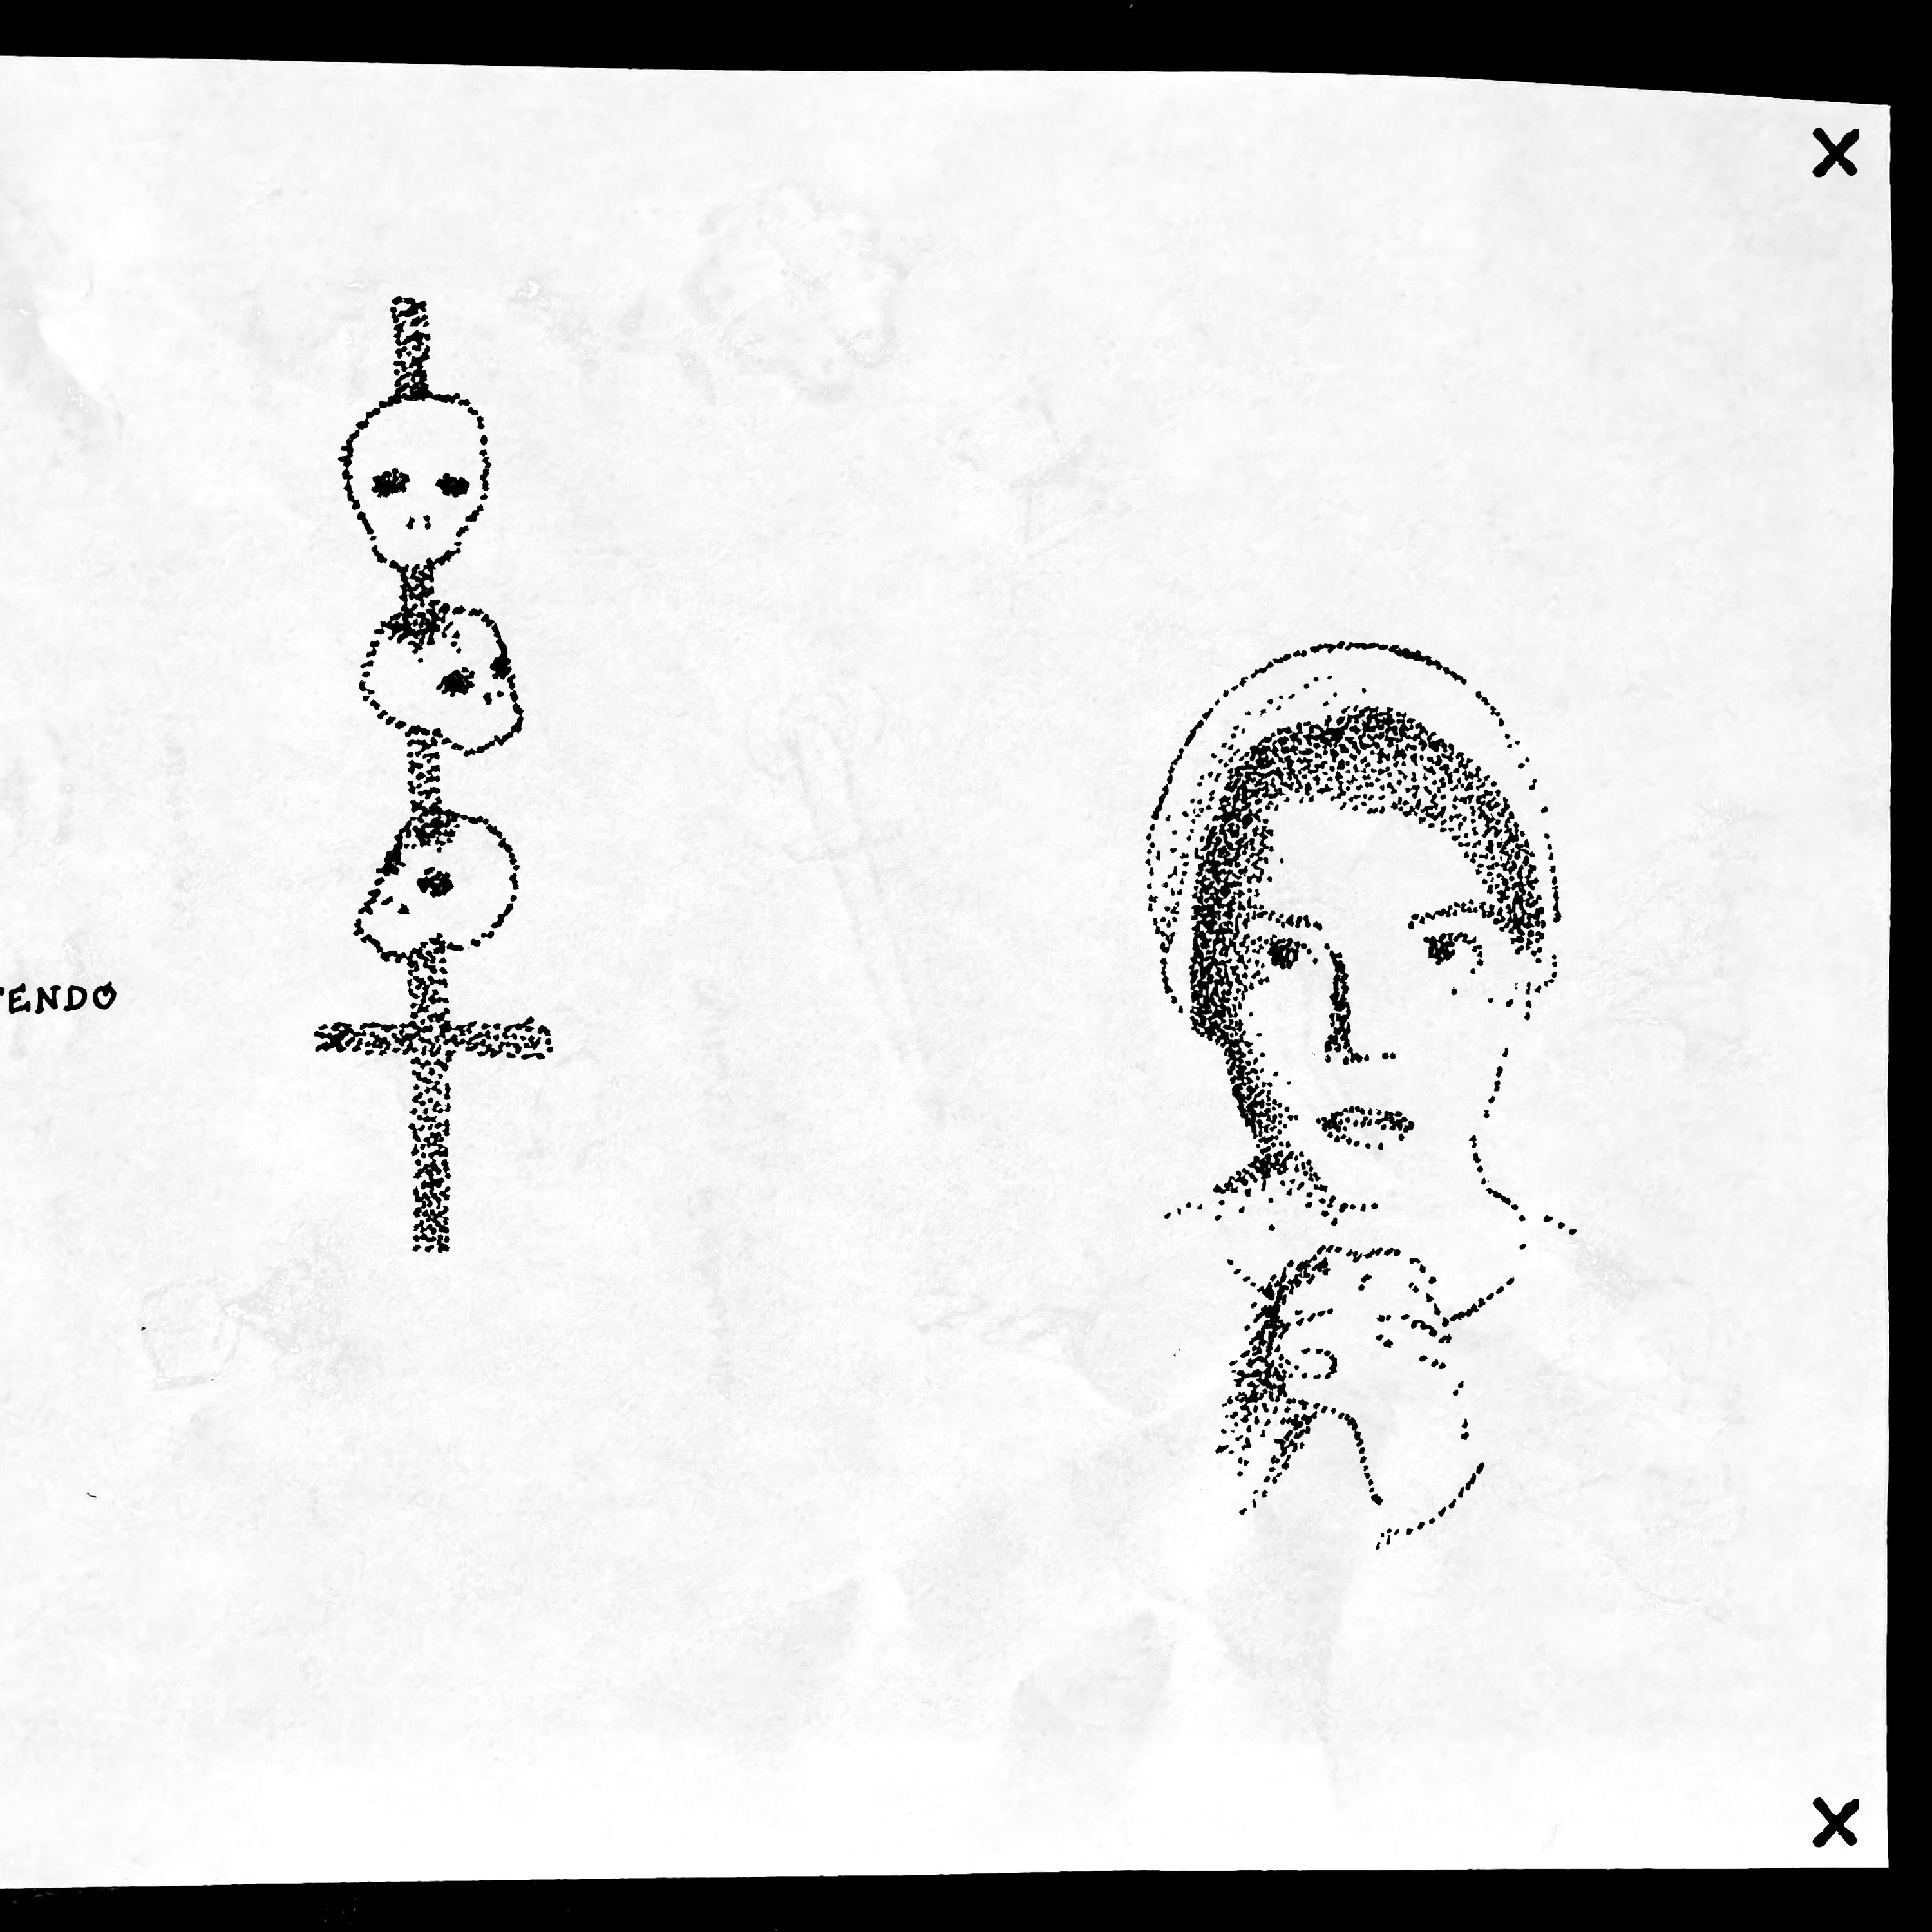 X
TENDO
X